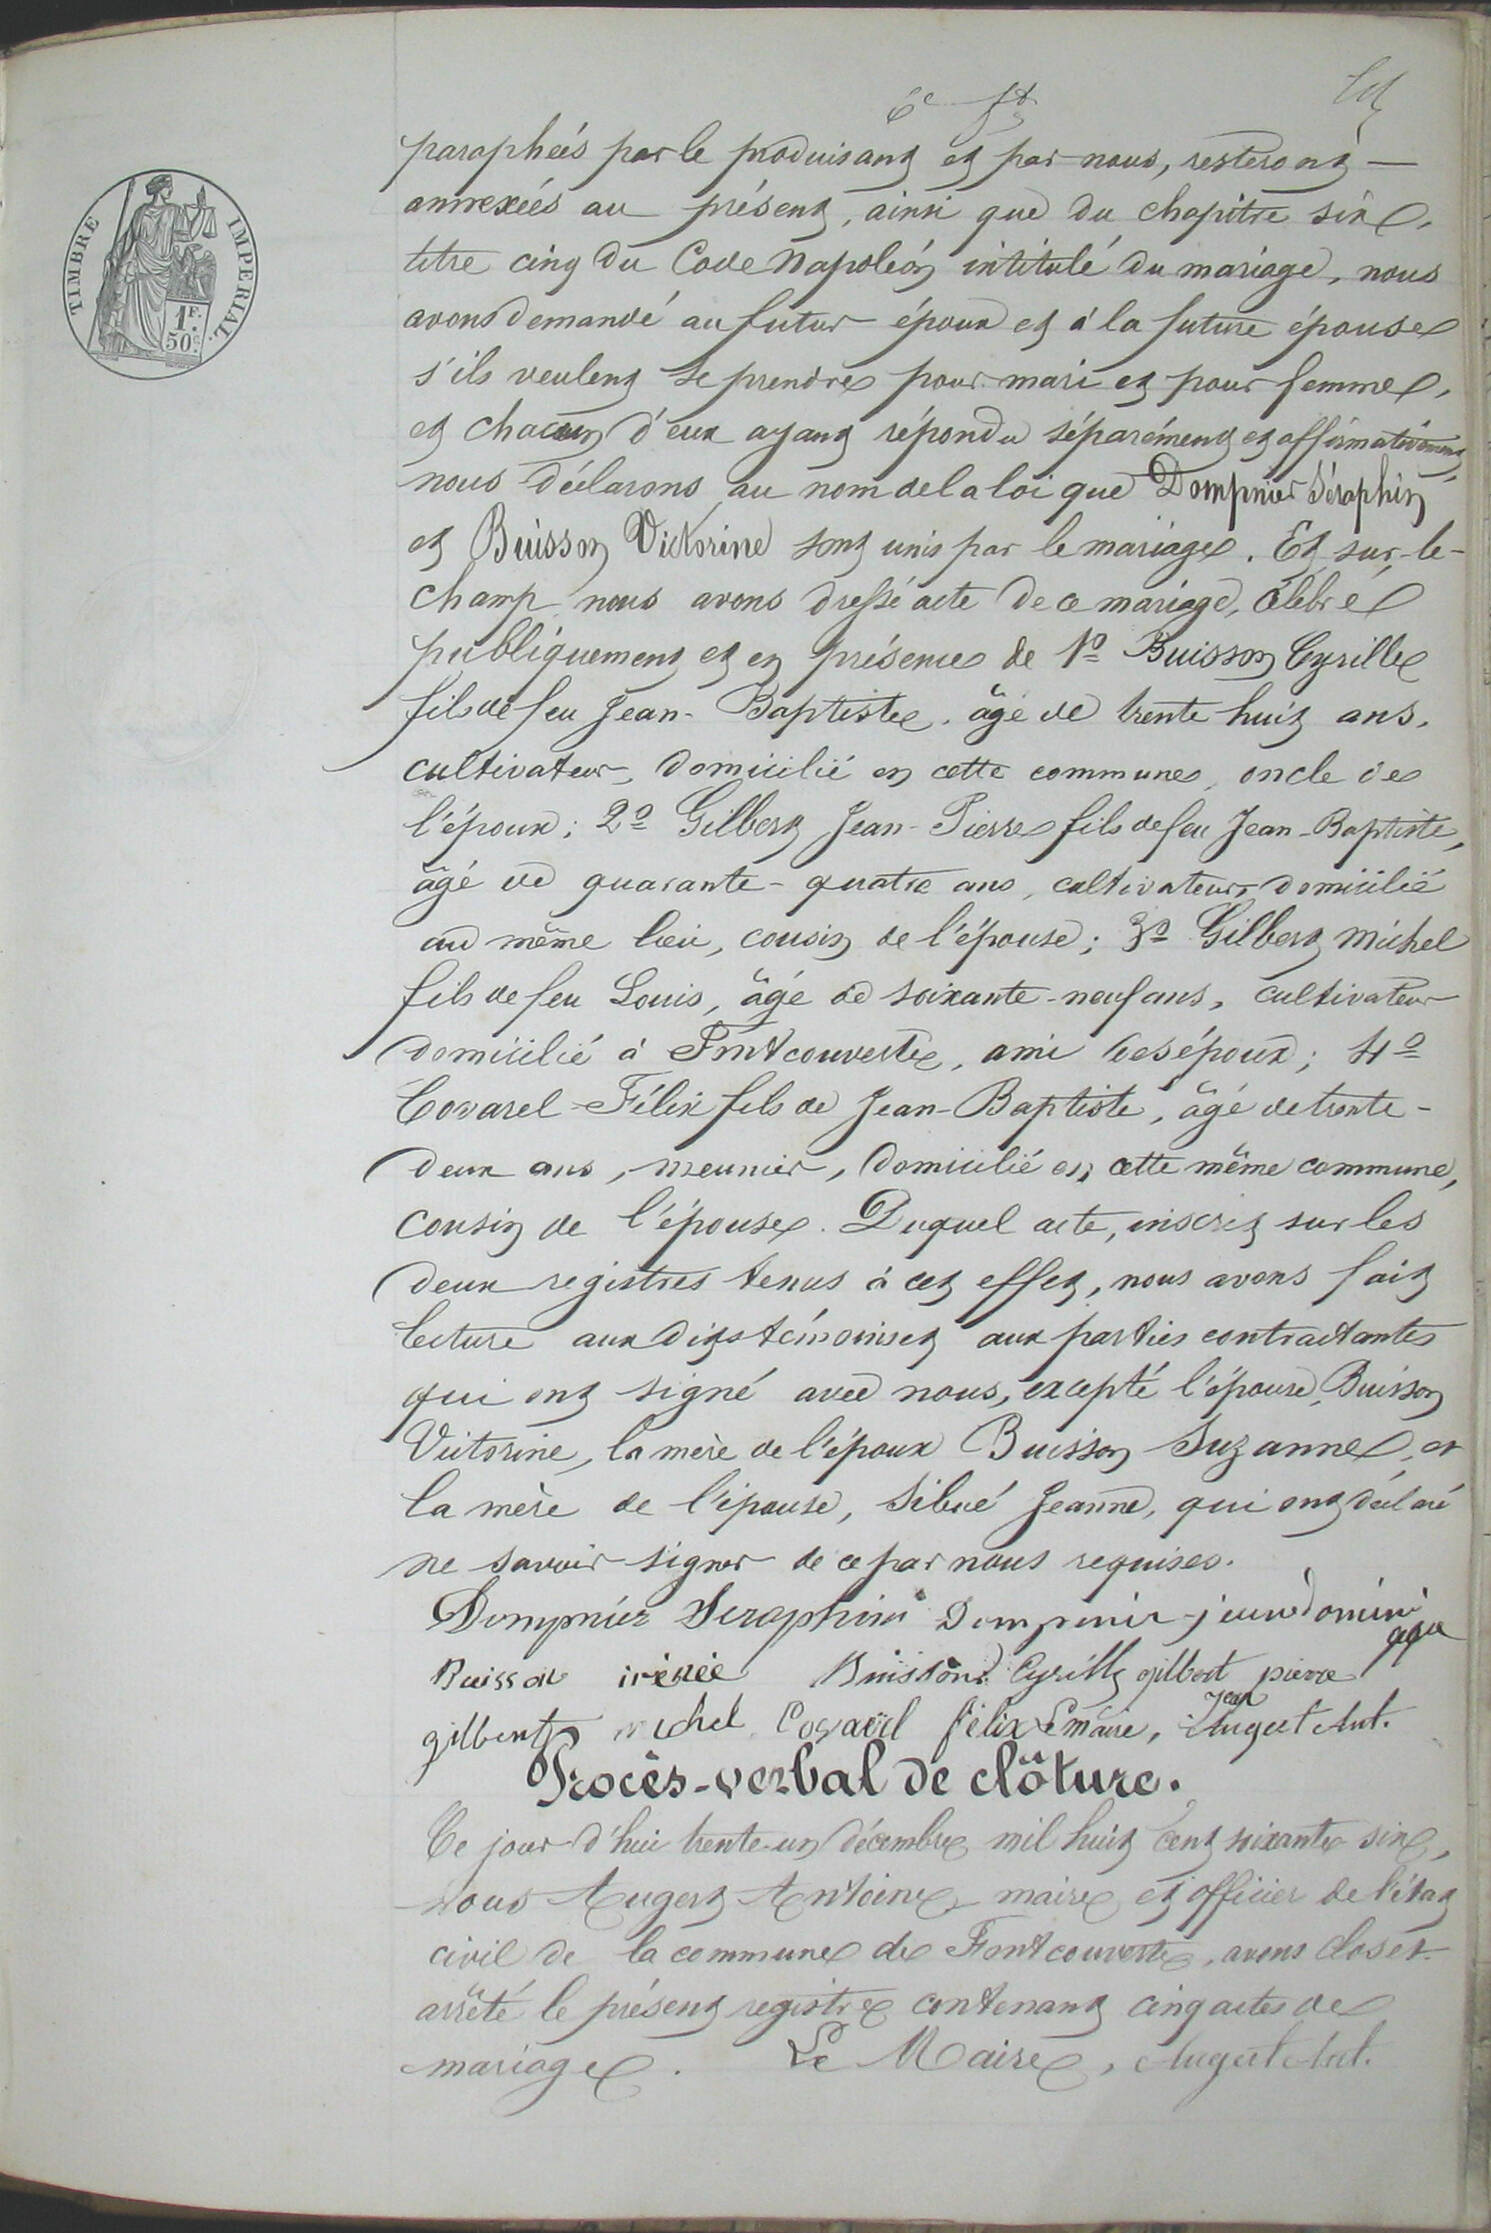 6e ft
TIMBRE IMPERIAL.
1F.
50c.
paraphées par le produisant et par nous, resteront —
annexées au présent, ainsi que du chapitre six,
titre cinq du Code Napoléon intitulé du mariage, nous
avons demandé au futur époux et à la future épouse
s'ils veulent se prendre pour mari et pour femme,
et chacun d'eux ayant répondu séparément et affirmativement,
nous déclarons au nom de la loi que Dompnier Séraphin
et Buisson Victorine sont unis par le mariage. Et sur-le-
champ nous avons dressé acte de ce mariage, célébré
publiquement et en présence de 1o Buisson Cyrille
fils de feu Jean-Baptiste, âgé de trente huit ans,
cultivateur, domicilié en cette commune, oncle de
l'époux; 2o Gilbert Jean-Pierre fils de feu Jean-Baptiste,
âgé de quarante-quatre ans, cultivateur, domicilié
au même lieu, cousin de l'épouse; 3o Gilbert Michel
fils de feu Louis, âgé de soixante-neuf ans, cultivateur
domicilié à Fontcouverte, ami des époux; 4o
Covarel Félix fils de Jean-Baptiste, âgé de trente-
deux ans, meunier, domicilié en cette même commune,
cousin de l'épouse. Duquel acte, inscrit sur les
deux registres tenus à cet effet, nous avons fait
lecture aux dits témoins et aux parties contractantes
qui ont signé avec nous, excepté l'épouse, Buisson
Victorine, la mère de l'époux Buisson Suzanne, et
la mère de l'épouse, Sibué Jeanne, qui ont déclaré
ne savoir signer de ce par nous requises.
Dompnier Seraphin Dompnier jean dominique
Buisson irénée Buisson Cyrille gilbert jean pierre
gilbert michel Covarel félix Le maire, Augert Ant.
Procès-verbal de clôture.
Ce jour d'hui trente-un décembre mil huit cent soixante six,
nous Augert Antoine maire et officier de l'état
civil de la commune de Fontcouverte, avons clos et
arrêté le présent registre contenant cinq actes de
mariage. Le Maire, Augert Ant.